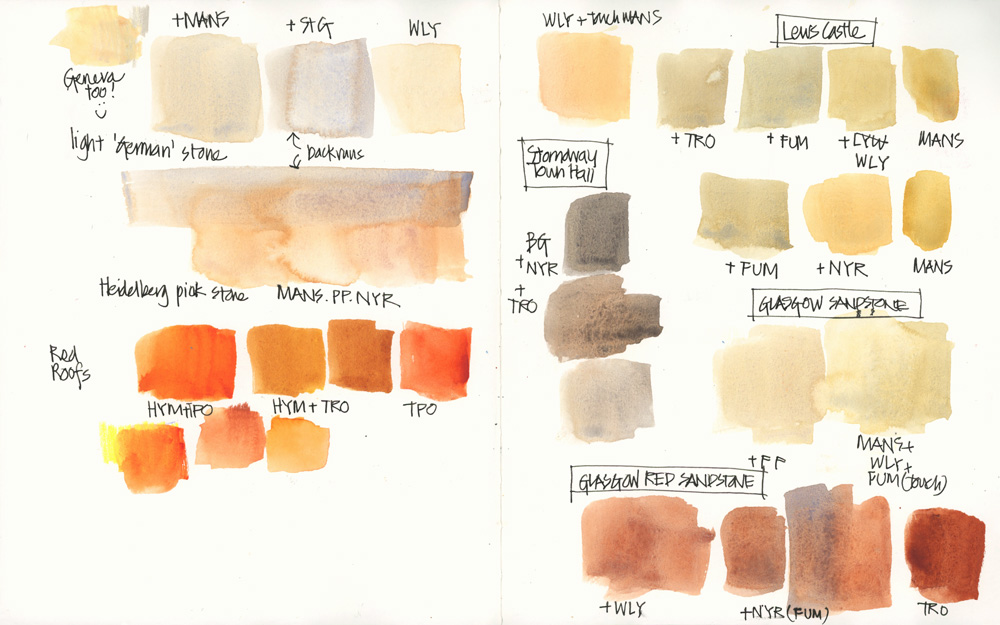 +MANS
+ StG
WLY
Geneva
too!
light 'German' stone
backruns
Heidelberg pink stone
MANS. PP. NYR
Red
Roofs
HYM+TPO
HYM + TRO
TPO
WLY + touch MANS
Lewis Castle
+ TRO
+ FUM
WLY
MANS
Stornoway
Town Hall
+ FUM
+ NYR
MANS
BG
+ NYR
+
TRO
GLASGOW SANDSTONE
MANS+
WLY+
FUM (touch)
GLASGOW RED SANDSTONE
+WLY
+NYR (FUM)
TRO